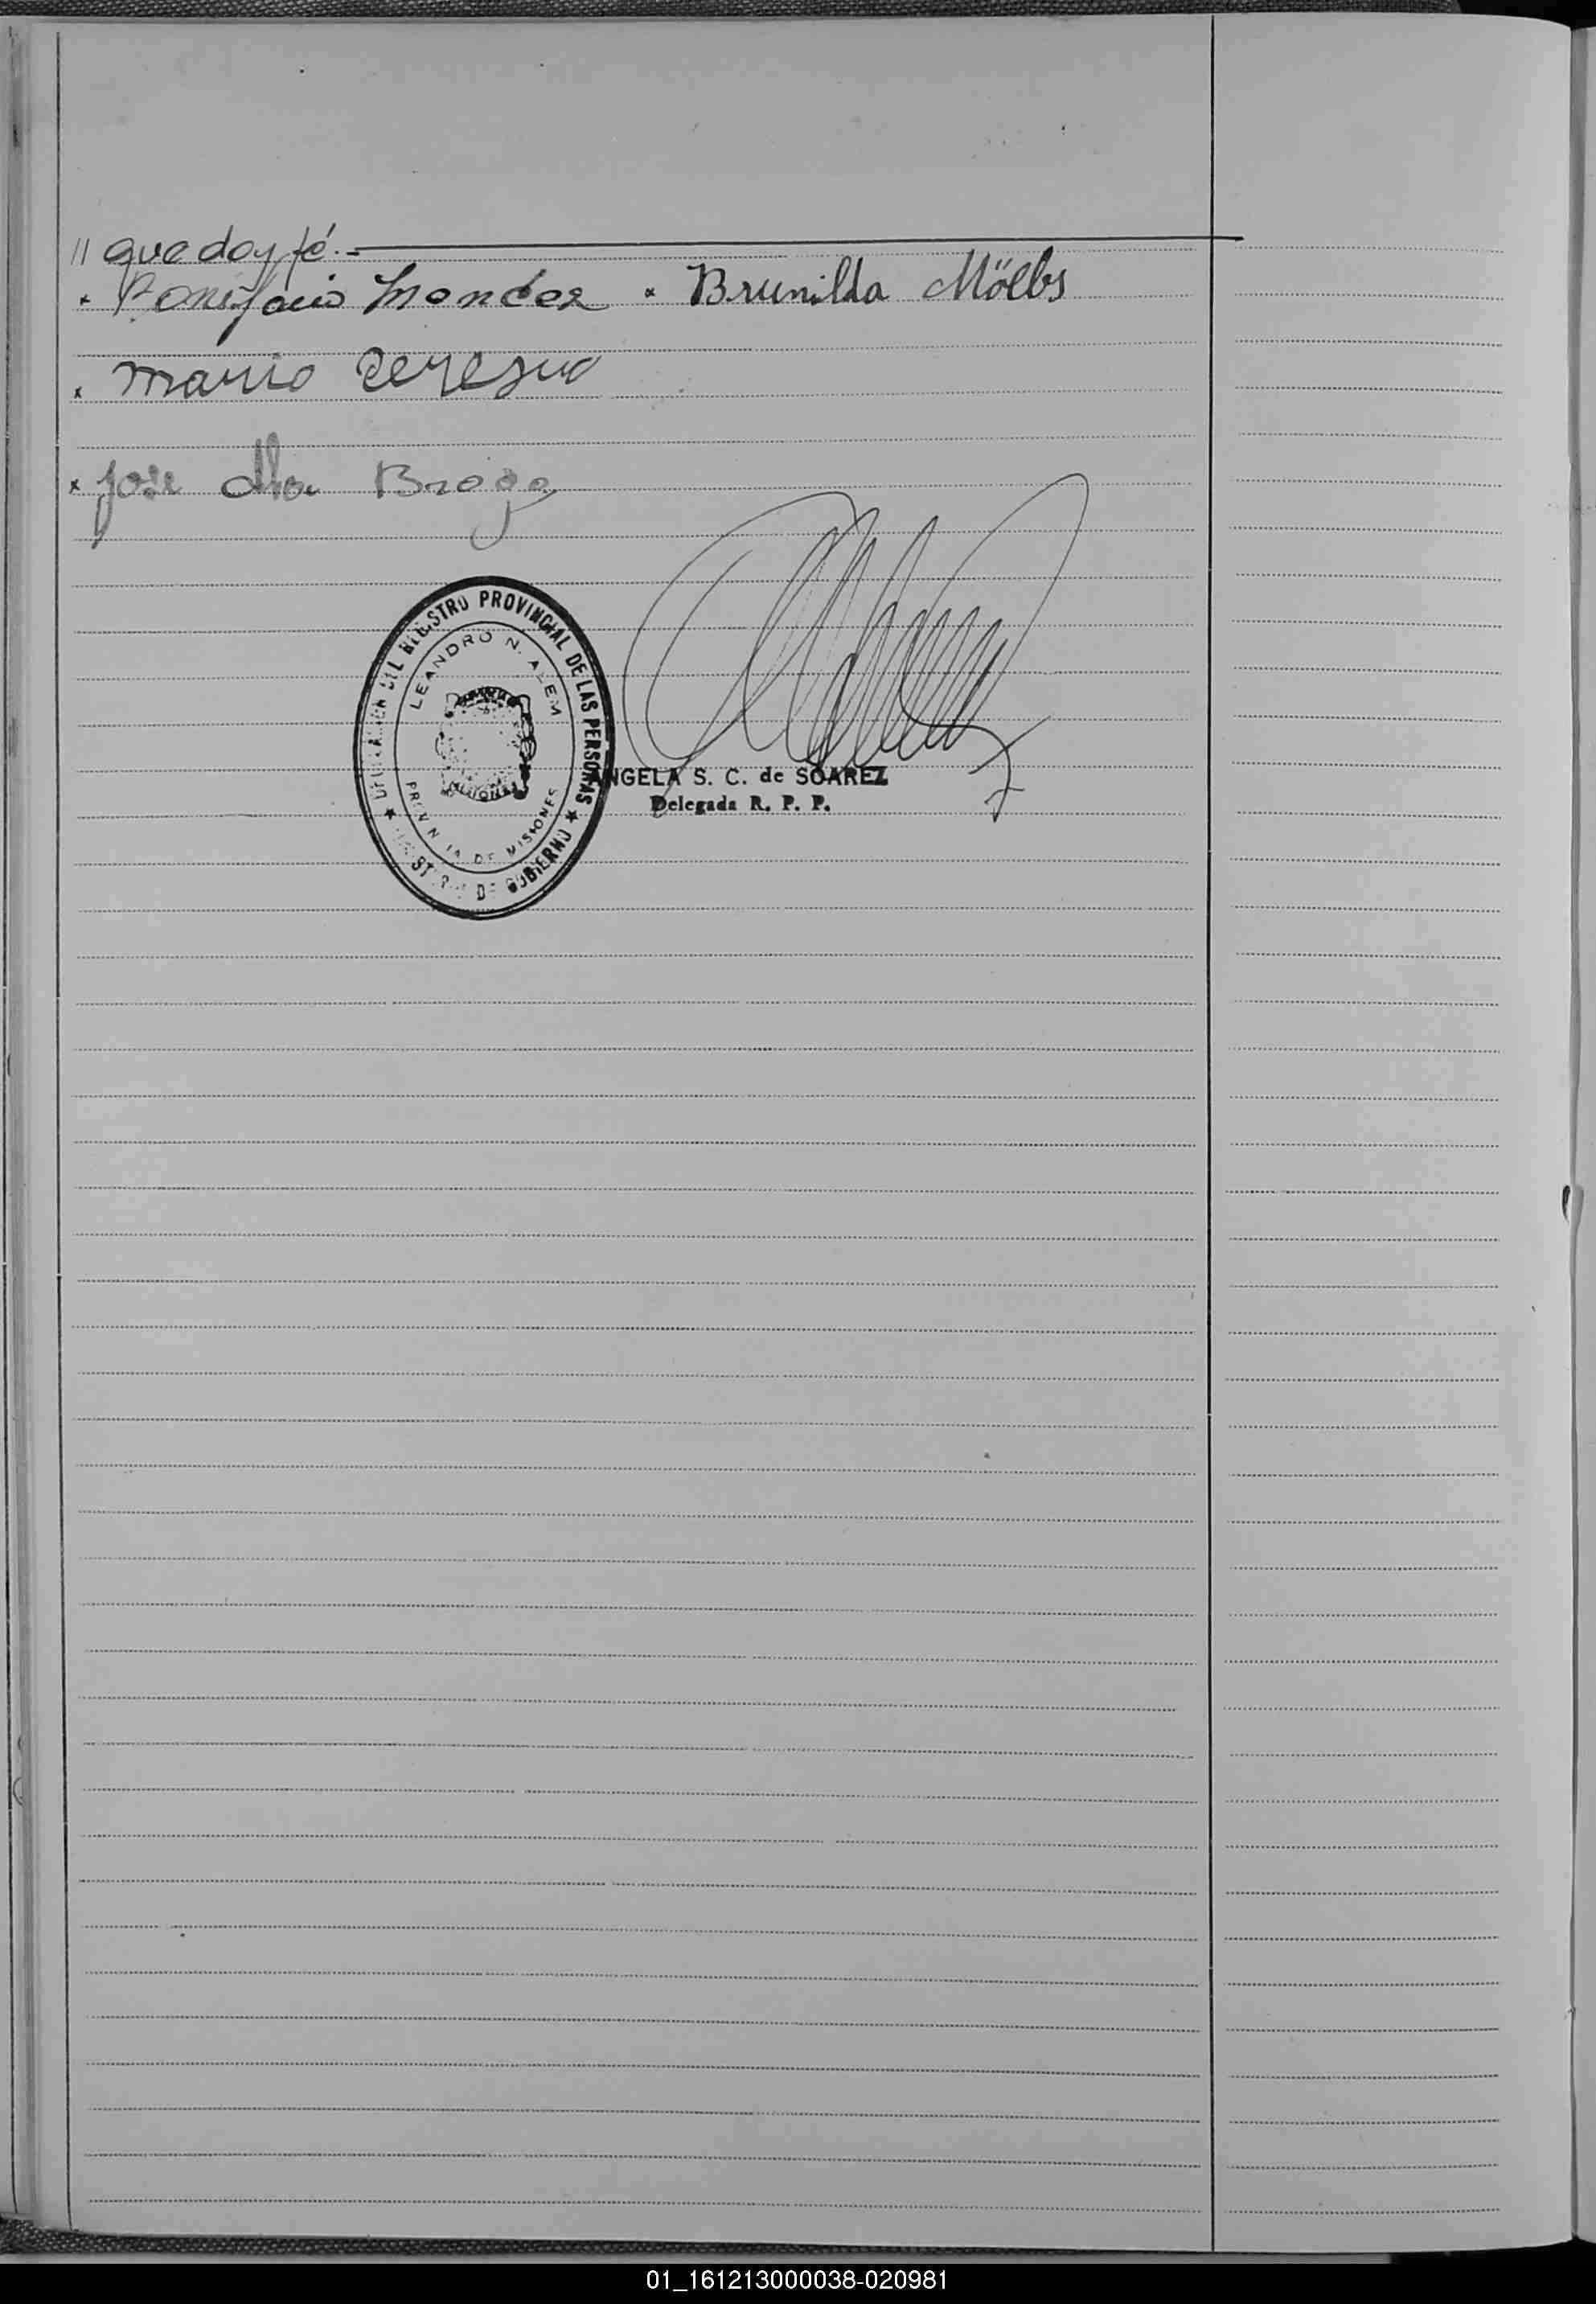 // que doy fé.-
x Bonifacio Mendez x Brunilda Mölbs
x Mario
x Jose Braga
DEL REGISTRO PROVINCIAL DE LAS PERSONAS
LEANDRO N. ALEM
MISIONES
PROVINCIA DE MISIONES
MINISTERIO DE GOBIERNO
ANGELA S. C. de SOAREZ
Delegada R. P. P.
01_161213000038-020981